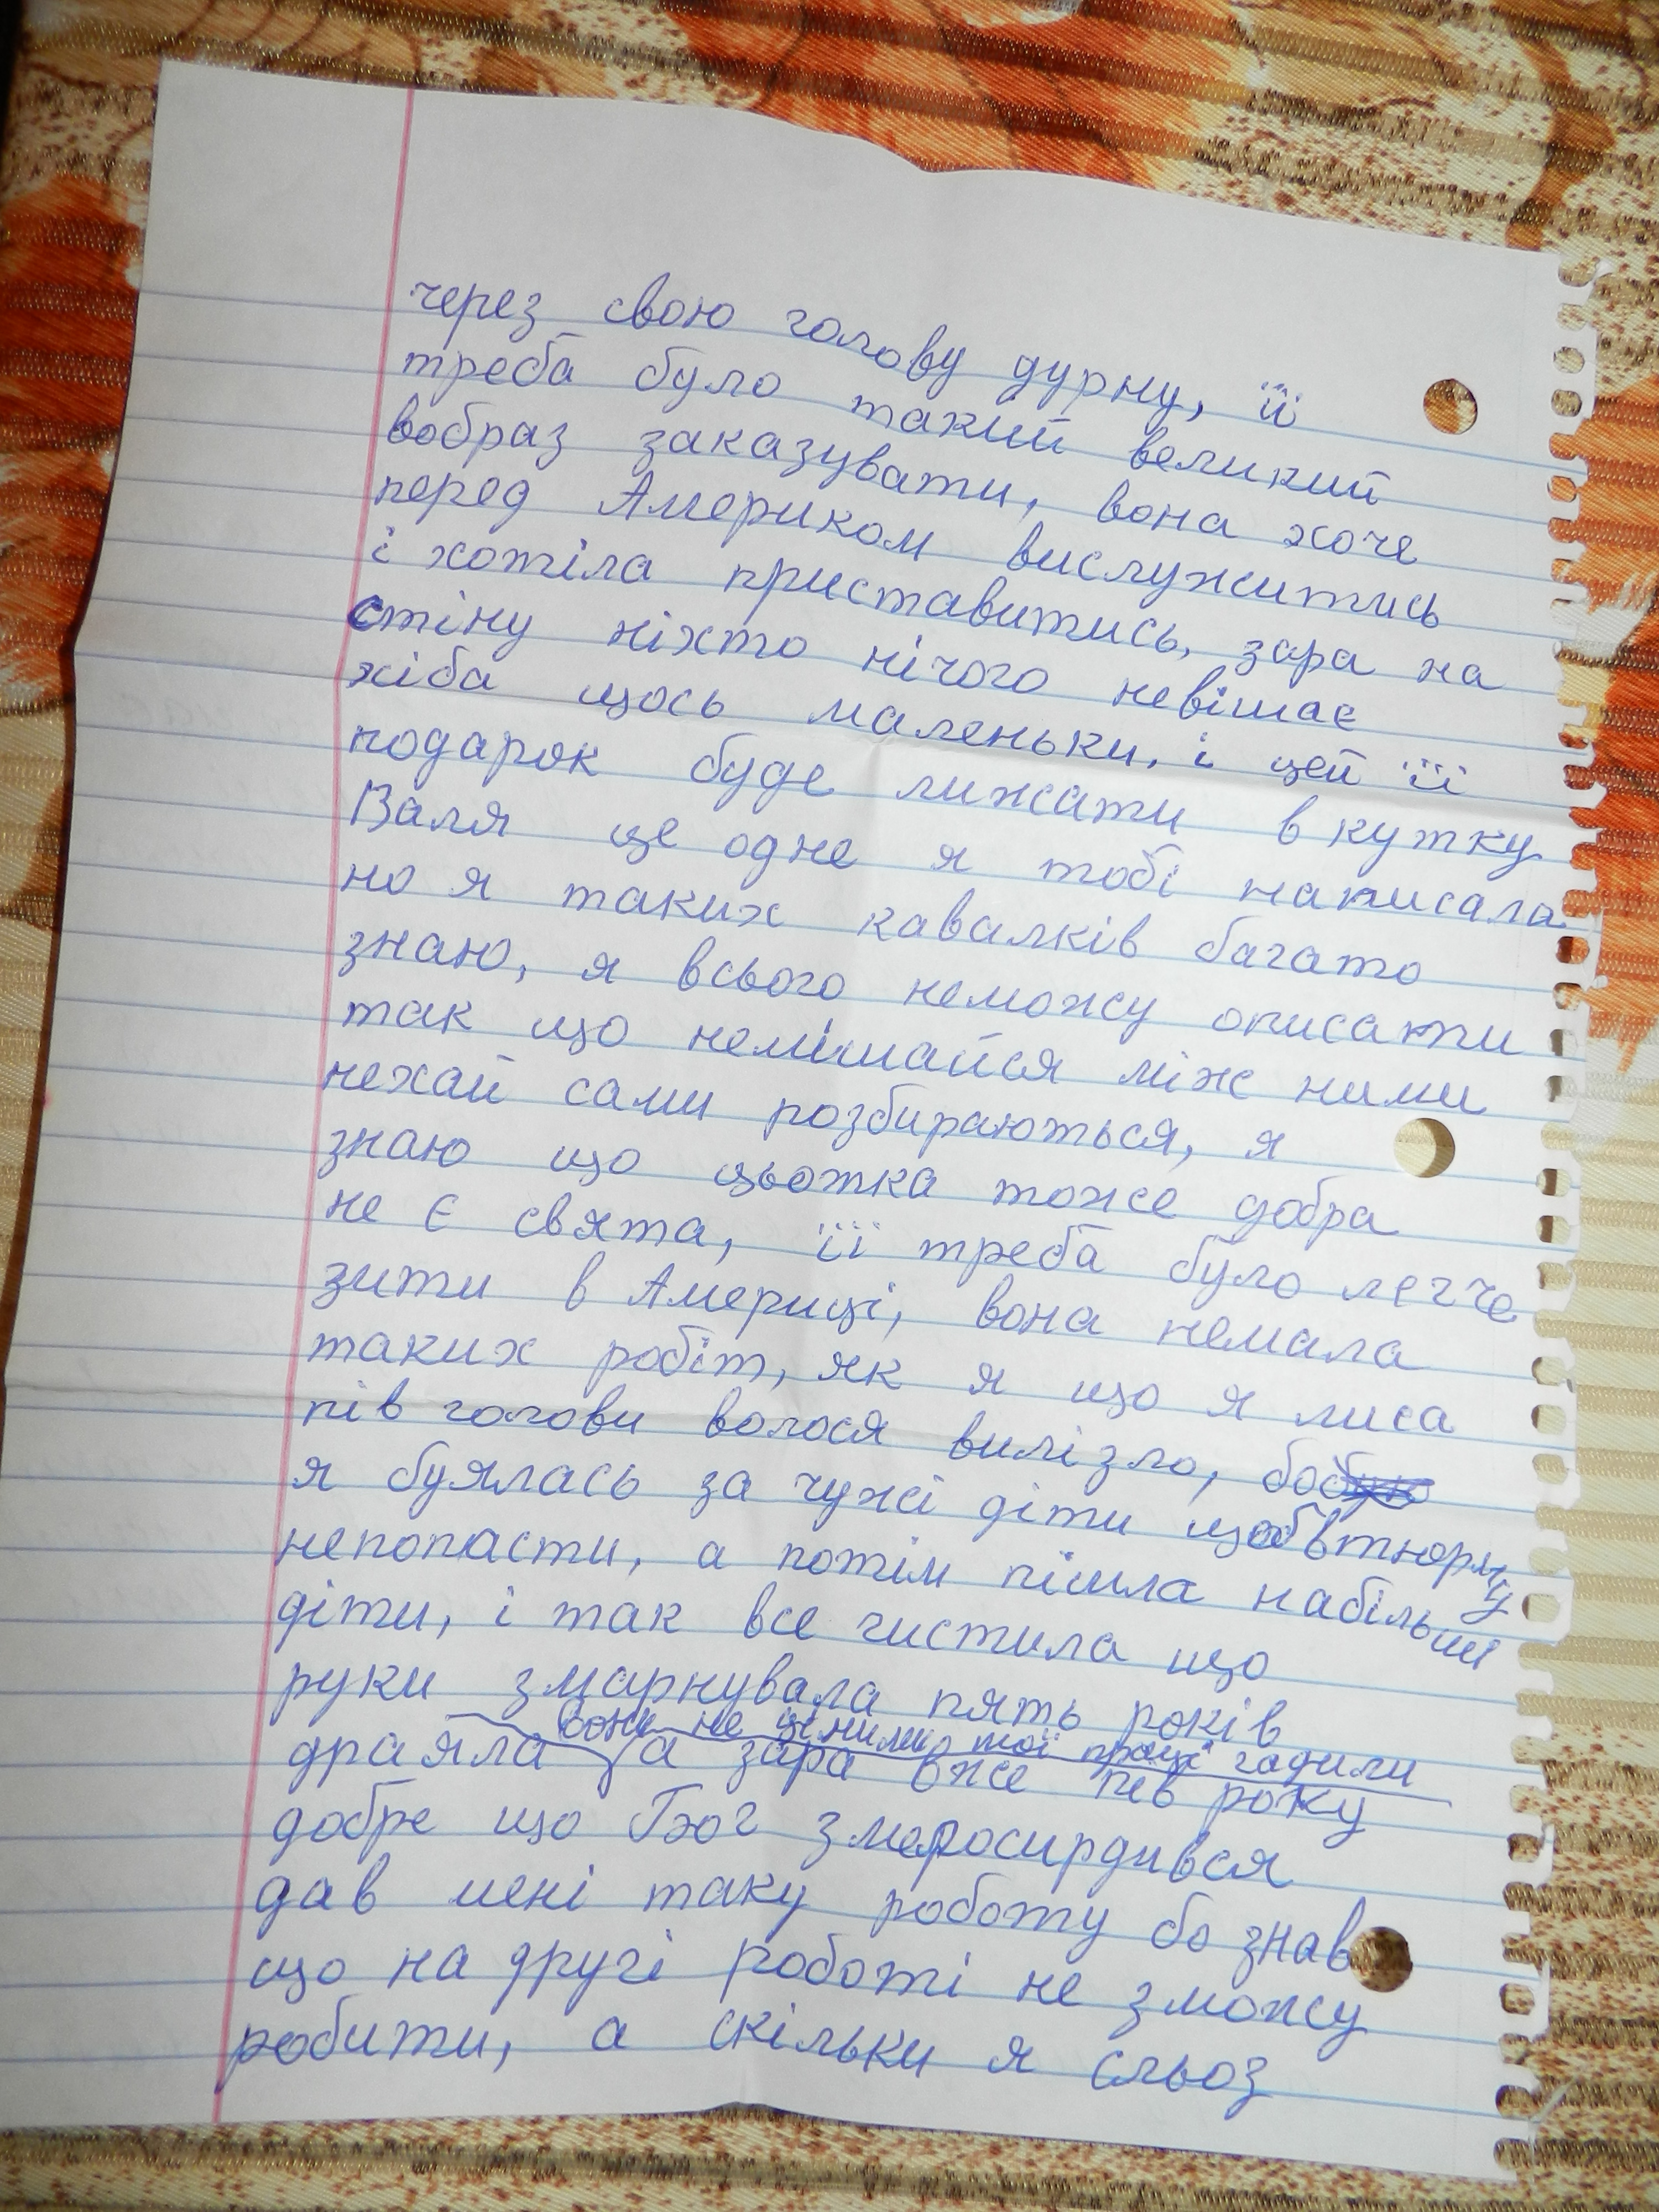 через свою голову дурну, її
треба було такий великий
вобраз заказувати, вона хоче
перед Америком вислужитись
і хотіла приставитись, зара на
стіну ніхто нічого невішає
хіба щось маленьки, і цей її
подарок буде лижати в кутку
Валя це одне я тобі написала
но я таких кавалків багато
знаю, я всього неможу описати
так що немішайся між ними
нехай сами розбираються, я
знаю що цьотка тоже добра
не є свята, її треба було легче
зити в Америці, вона немала
таких робіт, як я що я лиса
пів голови волося вилізло, бо
я буялась за чужі діти щоб втюрму
непопасти, а потім пішла набільші
діти, і так все чистила що
руки змарнувала пять років
вони не цінили мої праці гадили
драяла а зара вже пів року
добре що Бог змеросирдився
дав мені таку роботу бо знав
що на другі роботі не зможу
робити, а скільки я сльоз